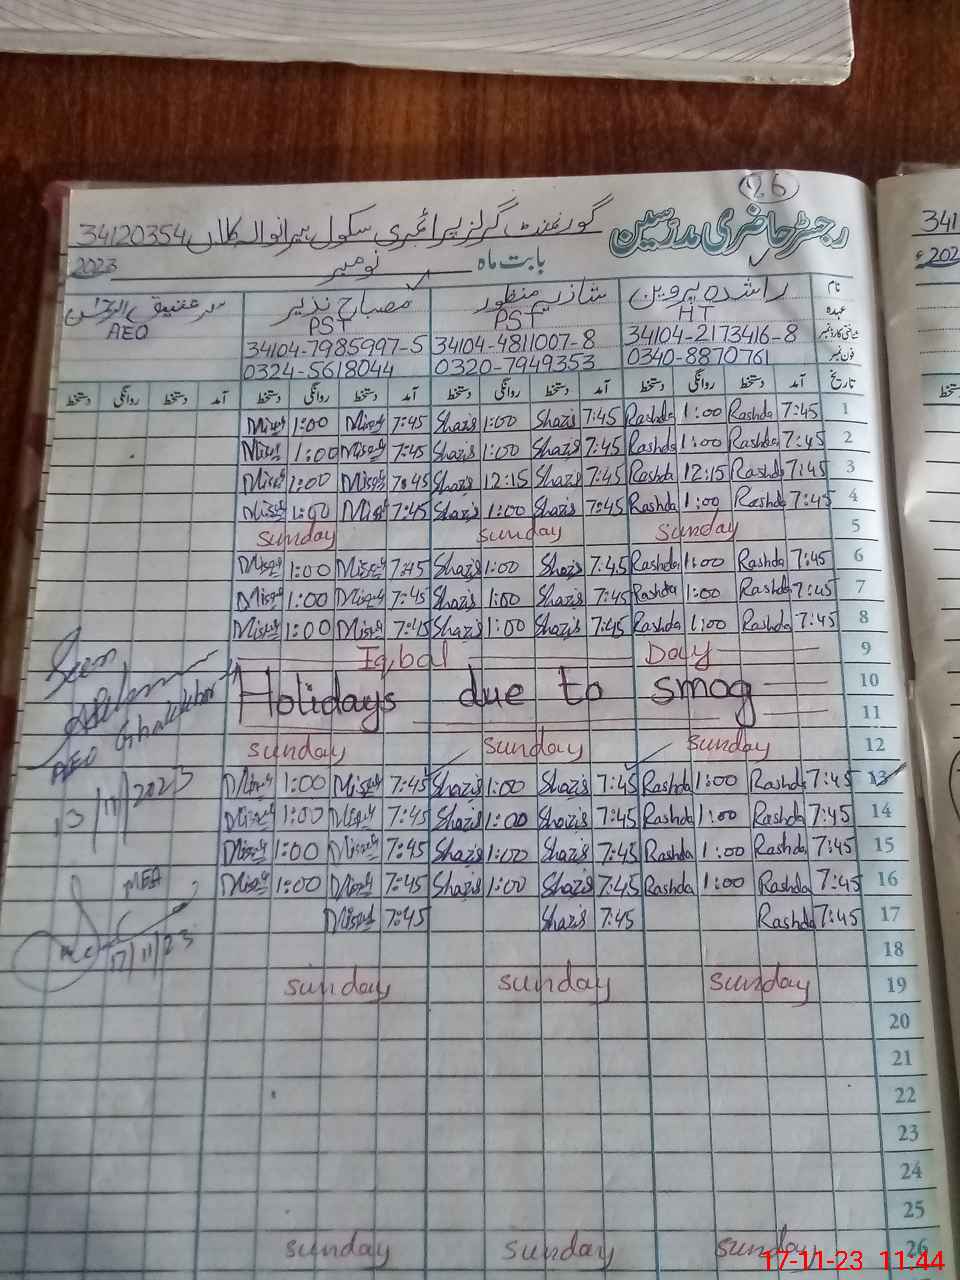 26
رجسٹر حاضری مدرسین گورنمنٹ گرلز پرائمری سکول پیرانوالہ کلاں 34120354
بابت ماہ نومبر 2023
نام راشدہ پروین شازیہ منظور مصباح نذیر
عہدہ HT PST PST AEO
34104-2173416-8 34104-4811007-8 34104-7985997-5
فون نمبر 0340-8870761 0320-7949353 0324-5618044
تاریخ آمد دستخط روانگی دستخط آمد دستخط روانگی دستخط آمد دستخط روانگی دستخط آمد دستخط روانگی دستخط
1 7:45 Rashda 1:00 Rashda 7:45 Shazis 1:00 Shazis 7:45 Misqah 1:00 Misqah
2 7:45 Rashda 1:00 Rashda 7:45 Shazis 1:00 Shazis 7:45 Misqah 1:00 Misqah
3 7:45 Rashda 12:15 Rashda 7:45 Shazis 12:15 Shazis 7:45 Misqah 1:00 Misqah
4 7:45 Rashda 1:00 Rashda 7:45 Shazis 1:00 Shazis 7:45 Misqah 1:00 Misqah
5 sunday sunday sunday
6 7:45 Rashda 1:00 Rashda 7:45 Shazis 1:00 Shazis 7:45 Misqah 1:00 Misqah
7 7:45 Rashda 1:00 Rashda 7:45 Shazis 1:00 Shazis 7:45 Misqah 1:00 Misqah
8 7:45 Rashda 1:00 Rashda 7:45 Shazis 1:00 Shazis 7:45 Misqah 1:00 Misqah
Iqbal Day 9
10
Holidays due to smog
11
12 sunday sunday sunday
13 7:45 Rashda 1:00 Rashda 7:45 Shazis 1:00 Shazis 7:45 Misqah 1:00 Misqah
14 7:45 Rashda 1:00 Rashda 7:45 Shazis 1:00 Shazis 7:45 Misqah 1:00 Misqah
15 7:45 Rashda 1:00 Rashda 7:45 Shazis 1:00 Shazis 7:45 Misqah 1:00 Misqah
16 7:45 Rashda 1:00 Rashda 7:45 Shazis 1:00 Shazis 7:45 Misqah 1:00 Misqah
17 7:45 Rashda 7:45 Shazis 7:45 Misqah
18
19 sunday sunday sunday
20
21
22
23
24
25
26 sunday sunday sunday
Seen
AEO Ghakkhar
13/11/2023
MEA
17/11/23
341
202
دستخط
17-11-23 11:44